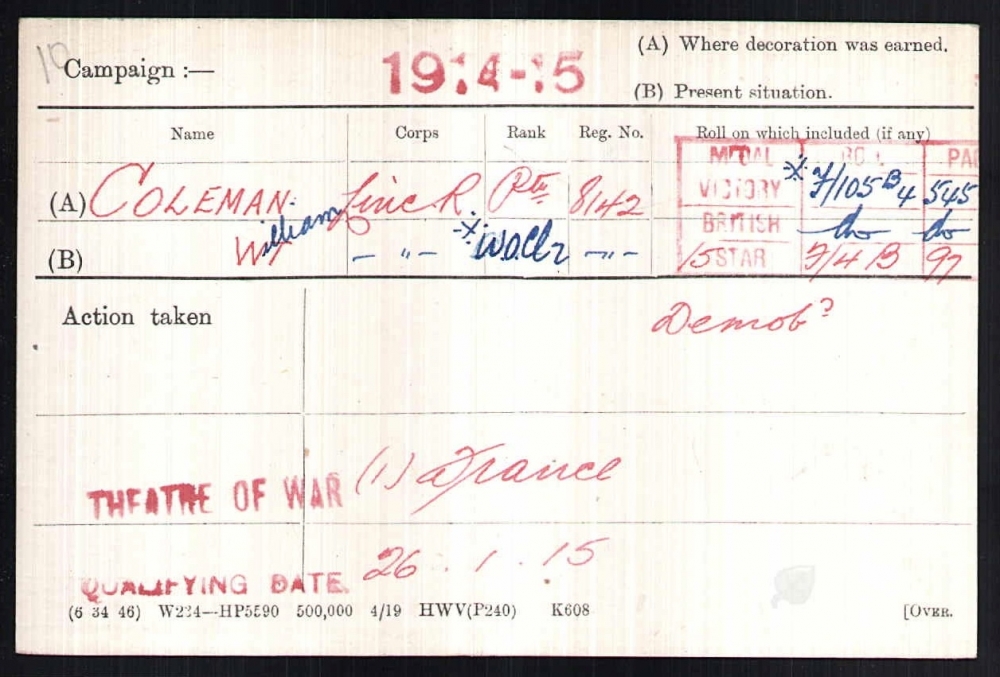 Campaign :— 1914-15 (A) Where decoration was earned.
(B) Present situation.
Name Corps Rank Reg. No. Roll on which included (if any)
MEDAL ROLL PA
(A) COLEMAN Linc R Pte 8142 VICTORY F/105 B4 545
William BRITISH do do
(B) W — " — W.O.Cl2 — " — 15 STAR F/4 B 97
Action taken Demob
THEATRE OF WAR (1) France
QUALIFYING DATE. 26 . 1 . 15
(6 34 46) W234—HP5590 500,000 4/19 HWV(P240) K608 [OVER.